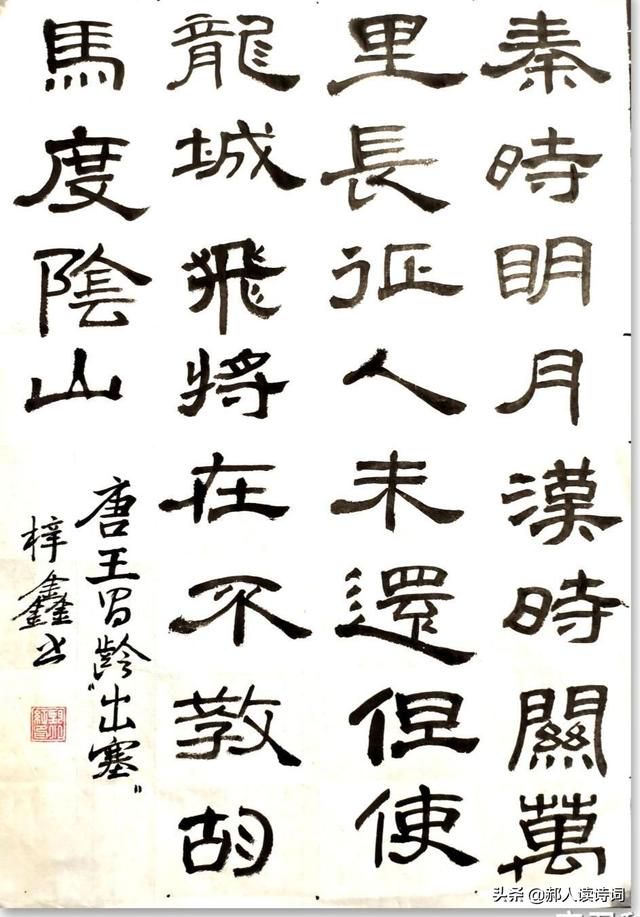 秦時明月漢時關萬
里長征人未還但使
龍城飛將在不教胡
馬度陰山
唐王昌齡"出塞"
梓鑫书
头条 @郝人读诗词